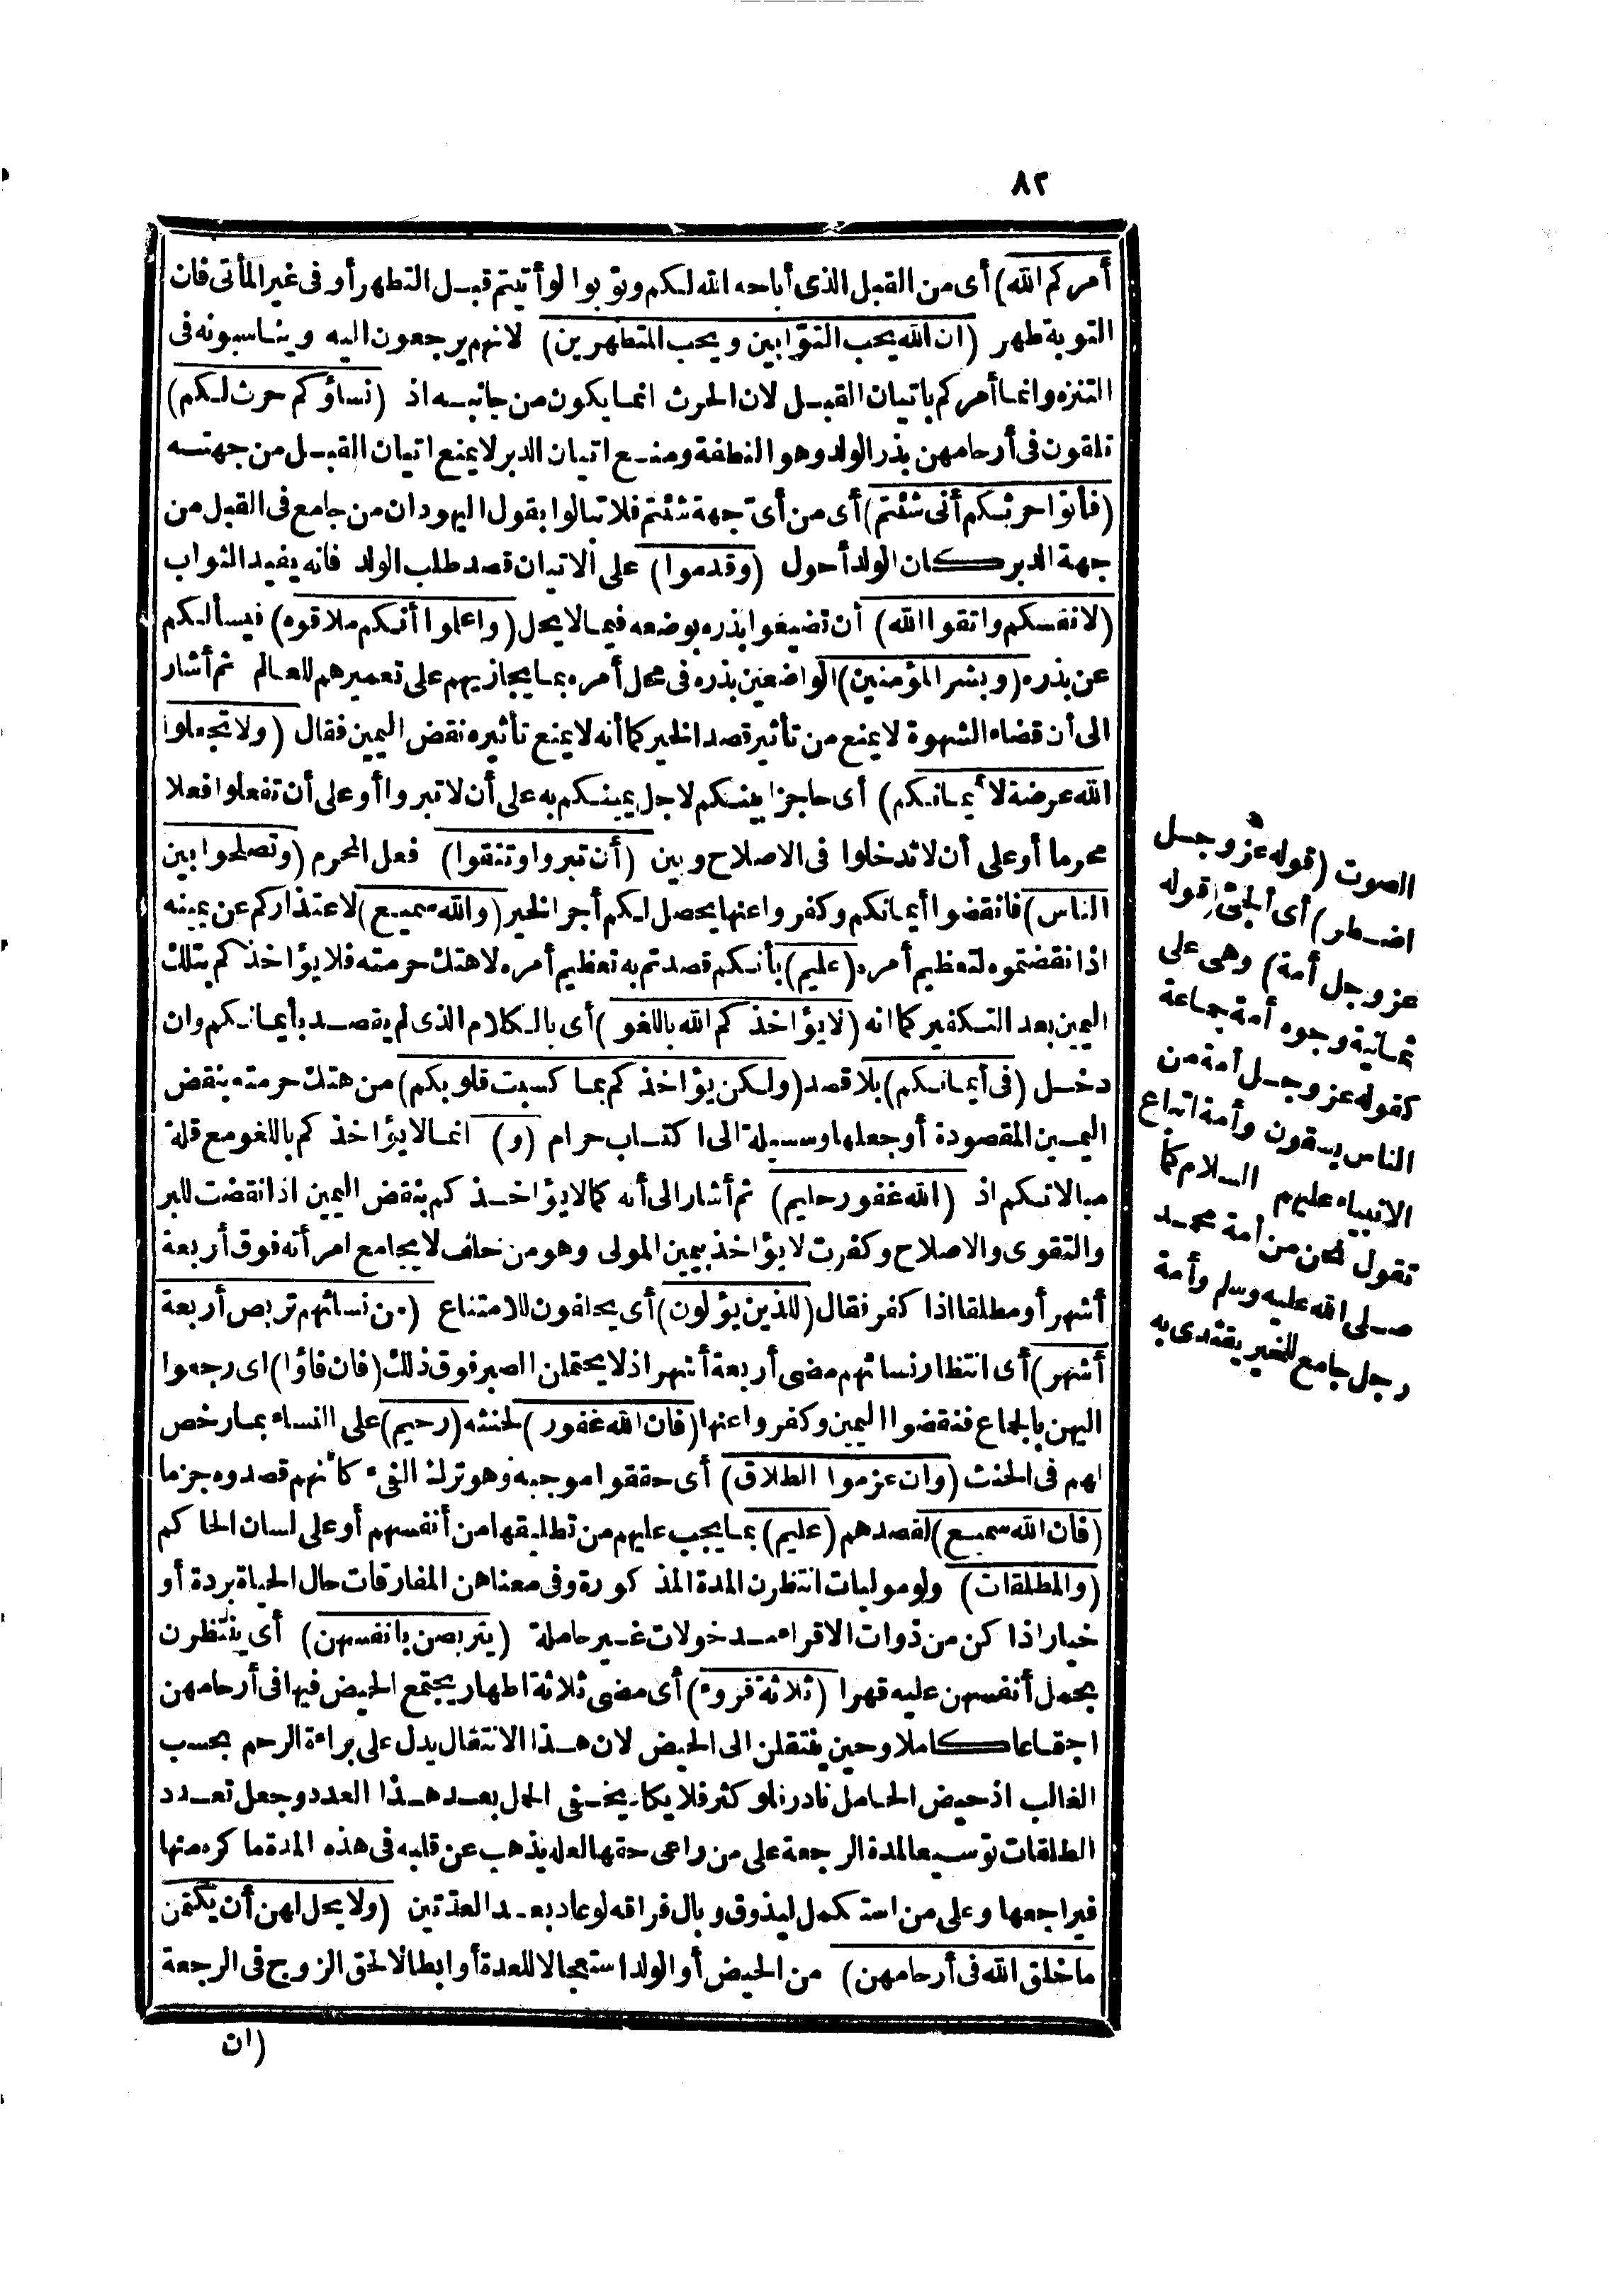 ٨٢
أمركم الله) أى من القبل الذى أباحه الله لكم وتوبوا لو أتيتم قبل التطهر أو فى غير المأتى فان
التوبة طهر (ان الله يحب التوّابين ويحب المتطهرين) لانهم يرجعون اليه ويناسبونه فى
التنزه وانما أمركم باتيان القبل لان الحرث انما يكون من جانبه اذ (نساؤكم حرث لكم)
تلقون فى أرحامهن بذر الولد وهو النطفة ومنع اتيان الدبر لا يمنع اتيان القبل من جهته
(فأتوا حرثكم أنى شئتم) أى من أىّ جهة شئتم فلا تبالوا بقول اليهود ان من جامع فى القبل من
جهة الدبر كان الولد أحول (وقدموا) على الاتيان قصد طلب الولد فانه يفيد الثواب
(لانفسكم واتقوا الله) أن تضيعوا بذره بوضعه فيما لا يحل (واعلموا أنكم ملاقوه) فيسألكم
عن بذره (وبشر المؤمنين) الواضعين بذره فى محل أمره بما يجازيهم على تعميرهم للعالم ثم أشار
الى أن قضاء الشهوة لا يمنع من تأثير قصد الخير كما أنه لا يمنع تأثيره نقض اليمين فقال (ولا تجعلوا
الله عرضة لأيمانكم) أى حاجزا بينكم لاجل يمينكم به على أن لا تبروا أو على أن تفعلوا فعلا
محرما أو على أن لا تدخلوا فى الاصلاح وبين (أن تبروا وتتقوا) فعل المحرم (وتصلحوا بين
الناس) فانقضوا أيمانكم وكفروا عنها يحصل لكم أجر الخير (والله سميع) لاعتذاركم عن يمينه
اذا نقضتموه لتعظيم أمره (عليم) بأنكم قصدتم به تعظيم أمره لا هتك حرمته فلا يؤاخذكم بتلك
اليمين بعد التكفير كما انه (لا يؤاخذكم الله باللغو) أى بالكلام الذى لم يقصد بأيمانكم وان
دخل (فى أيمانكم) بلا قصد (ولكن يؤاخذكم بما كسبت قلوبكم) من هتك حرمته بنقض
اليمين المقصودة أو جعلها وسيلة الى اكتساب حرام (و) انما لا يؤاخذكم باللغو مع قلة
مبالاتكم اذ (الله غفور حليم) ثم أشار الى أنه كما لا يؤاخذكم بنقض اليمين اذا نقضت للبر
والتقوى والاصلاح وكفرت لا يؤاخذ بيمين المولى وهو من حلف لا يجامع امرأته فوق أربعة
أشهر أو مطلقا اذا كفر فقال (للذين يؤلون) أى يحلفون للامتناع (من نسائهم تربص أربعة
أشهر) أى انتظار نسائهم مضى أربعة أشهر اذ لا يحتملن الصبر فوق ذلك (فان فاؤا) اى رجعوا
اليهن بالجماع فنقضوا اليمين وكفروا عنها (فان الله غفور) لحنثه (رحيم) على النساء بما رخص
لهم فى الحنث (وان عزموا الطلاق) أى حققوا موجبه وهو ترك الفىء كأنهم قصدوه جزما
(فان الله سميع) لقصدهم (عليم) بما يجب عليهم من تطليقها من أنفسهم أو على لسان الحاكم
(والمطلقات) ولو موليات انتظرن المدة المذكورة وفى معناهن المفارقات حال الحياة بردة أو
خيار اذا كن من ذوات الاقراء مدخولات غير حاملة (يتربصن بانفسهن) أى ينتظرن
بحمل أنفسهن عليه قهرا (ثلاثة قروء) أى مضى ثلاثة اطهار يجتمع الحيض فيها فى أرحامهن
اجتماعا كاملا وحين ينتقلن الى الحيض لان هذا الانتقال يدل على براءة الرحم بحسب
الغالب اذ حيض الحامل نادر فلو كثر فلا يكاد يخفى الحمل بعد هذا العدد وجعل تعدد
الطلقات توسيعا لمدة الرجعة على من راعى حقها لعله يذهب عن قلبه فى هذه المدة ما كره منها
فيراجعها وعلى من استكمل ليذوق وبال فراقه لو عاد بعد العدّتين (ولا يحل لهن أن يكتمن
ما خلق الله فى أرحامهن) من الحيض أو الولد استعجالا للعدة أو ابطالا لحق الزوج فى الرجعة
(ان
الصوت (قوله عز وجل
اضطر) أى ألجئ (قوله
عز وجل أمة) وهى على
ثمانية وجوه أمة جماعة
كقوله عز وجل أمة من
الناس يسقون وأمة اتباع
الانبياء عليهم السلام كما
تقول نحن من أمة محمد
صلى الله عليه وسلم وأمة
رجل جامع للخير يقتدى به